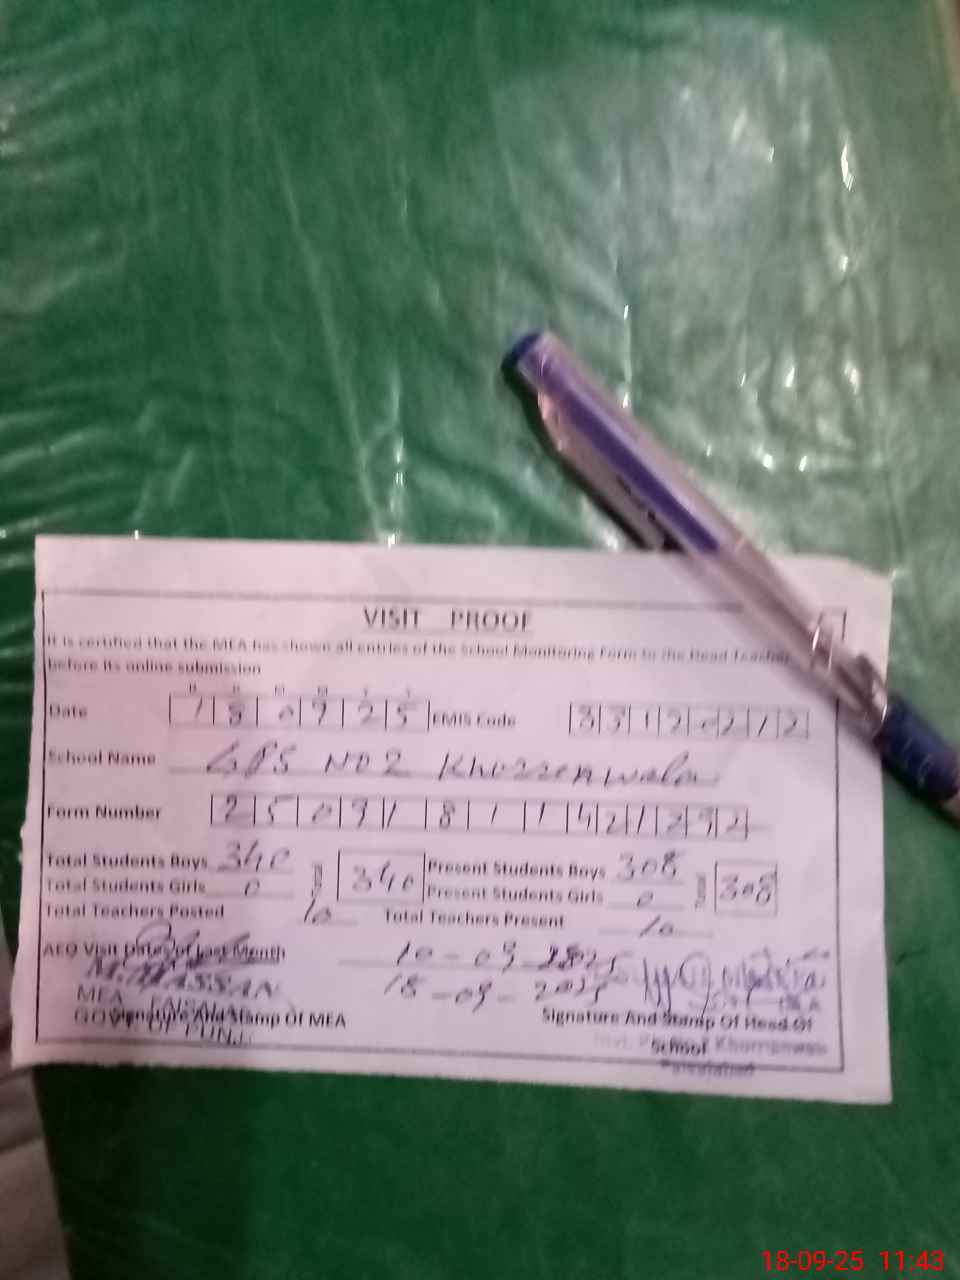 VISIT PROOF
It is certified that the MEA has shown all entries of the School Monitoring Form to the Head Teacher
before its online submission
Date 180925 EMIS Code 33120212
School Name GPS NO 2 Khurrianwala
Form Number 2509181142129 2
Total Students Boys 340 340 Present Students Boys 308 308
Total Students Girls 0 Present Students Girls 0
Total Teachers Posted 10 Total Teachers Present 10
AEO Visit Dates of Last Month 10-09-2025
M. HASSAN 18-09-2025
MEA FAISAL
Signature And Stamp Of MEA Signature And Stamp Of Head Of
GOVT OF PUNJ School
Faisalabad
18-09-25 11:43